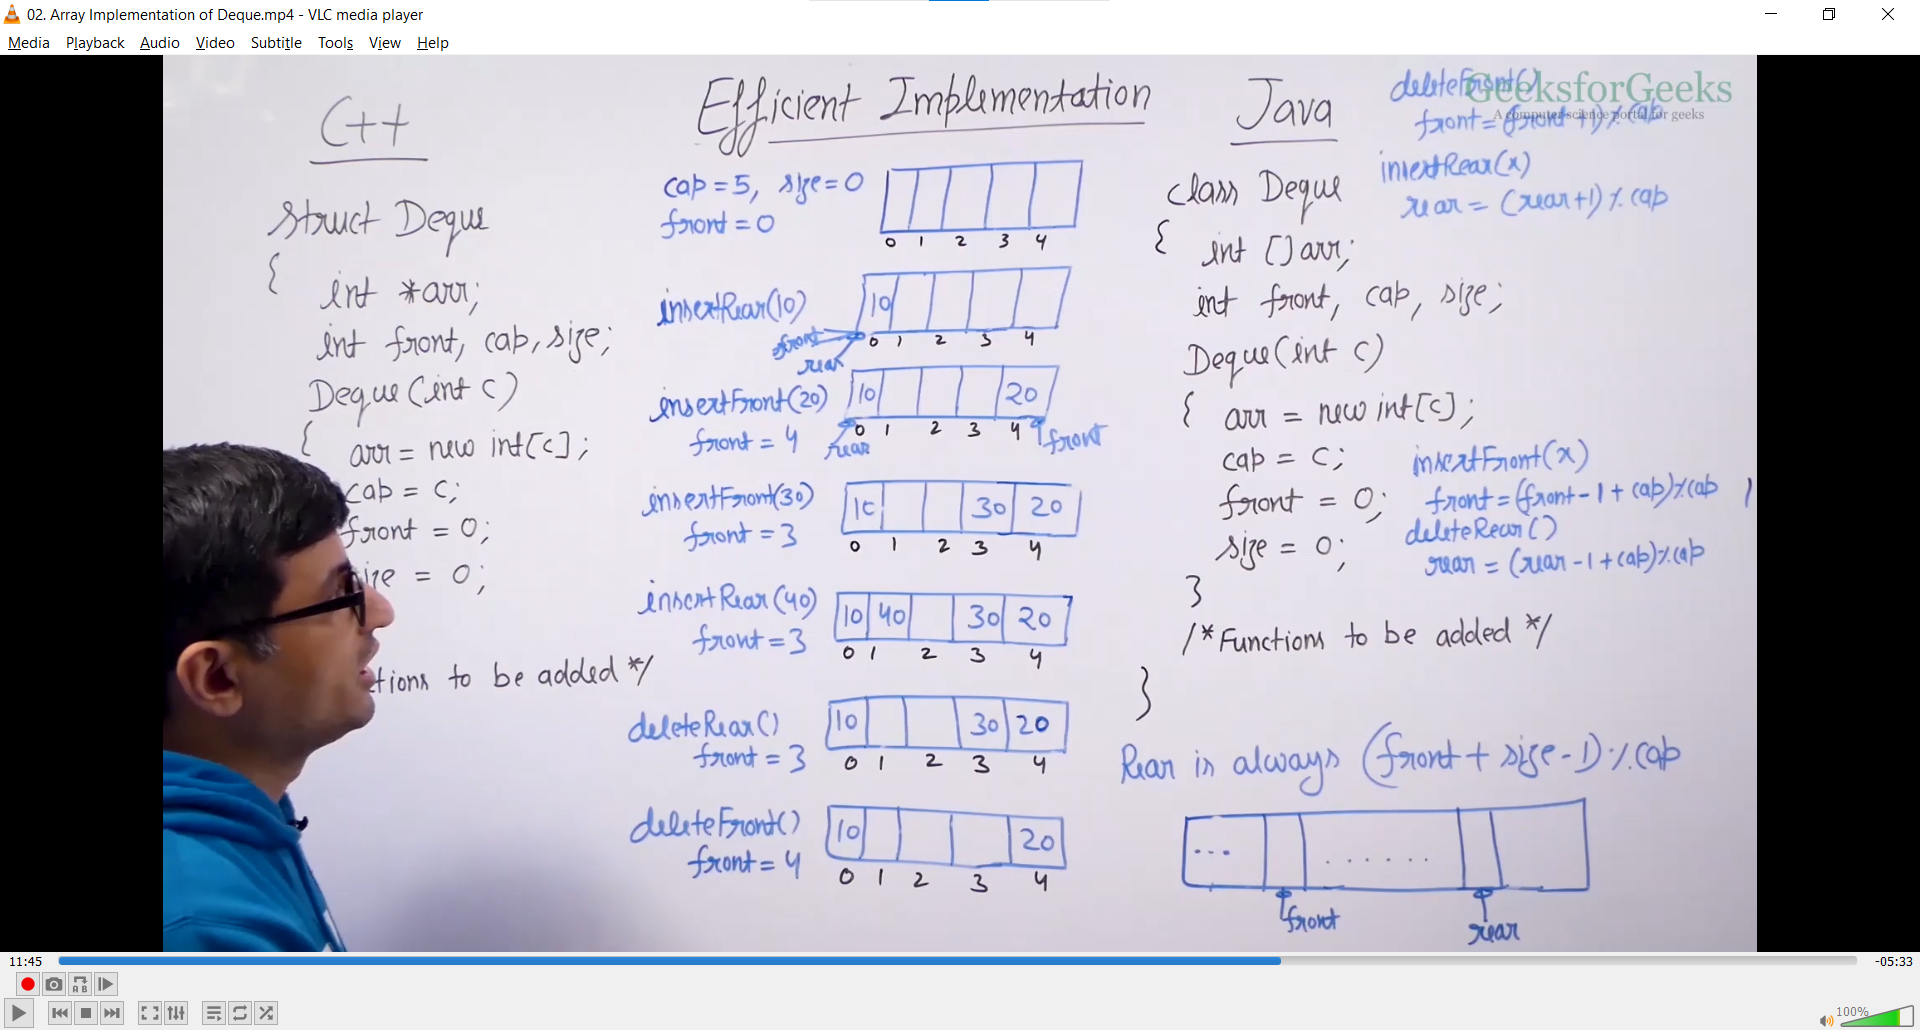 02. Array Implementation of Deque.mp4 - VLC media player
Media Playback Audio Video Subtitle Tools View Help
GeeksforGeeks
A computer science portal for geeks
Efficient Implementation
C++
struct Deque
{
int *arr;
int front, cap, size;
Deque(int c)
{ arr = new int[c];
cap = c;
front = 0;
size = 0;
to be added */
cap = 5, size = 0
front = 0
0 1 2 3 4
insertRear(10)
10
front
rear
0 1 2 3 4
insertFront(20)
front = 4
10 20
0 1 2 3 4
rear
front
insertFront(30)
front = 3
10 30 20
0 1 2 3 4
insertRear(40)
front = 3
10 40 30 20
0 1 2 3 4
deleteRear()
front = 3
10 30 20
0 1 2 3 4
deleteFront()
front = 4
10 20
0 1 2 3 4
Java
class Deque
{ int []arr;
int front, cap, size;
Deque(int c)
{ arr = new int[c];
cap = c;
front = 0;
size = 0;
}
/*Functions to be added */
}
deleteFront()
front = (front+1)%cap
insertRear(x)
rear = (rear+1)%cap
insertFront(x)
front = (front-1+cap)%cap
deleteRear()
rear = (rear-1+cap)%cap
Rear is always (front + size-1)%cap
... .......
front
rear
11:45
-05:33
100%